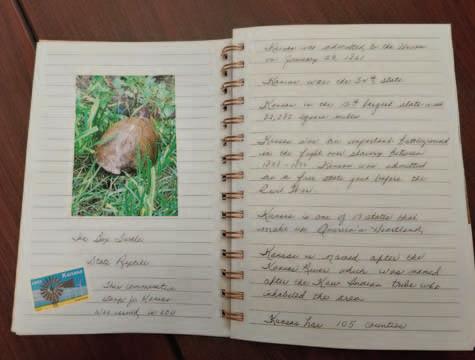 The Box Turtle
State Reptile
Kansas
This commemorative
stamp for Kansas
was issued in
Kansas was admitted to the Union
on January 29, 1861
Kansas was the 34th state
Kansas is the 15th largest state with
82,282 square miles
Kansas was an important battleground
in the fight over slavery between
Kansas was admitted
as a free state just before the
Civil War.
Kansas is one of 13 states that
make up America's Heartland
Kansas is named after the
Kansas River which was named
after the Kaw Indian tribe who
inhabited the area
Kansas has 105 counties